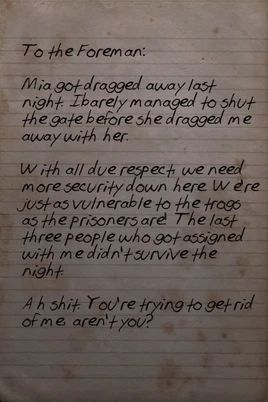 To the Foreman:
Mia got dragged away last
night. I barely managed to shut
the gate before she dragged me
away with her.
With all due respect, we need
more security down here. We're
just as vulnerable to the trogs
as the prisoners are! The last
three people who got assigned
with me didn't survive the
night.
Ah shit. You're trying to get rid
of me, aren't you?